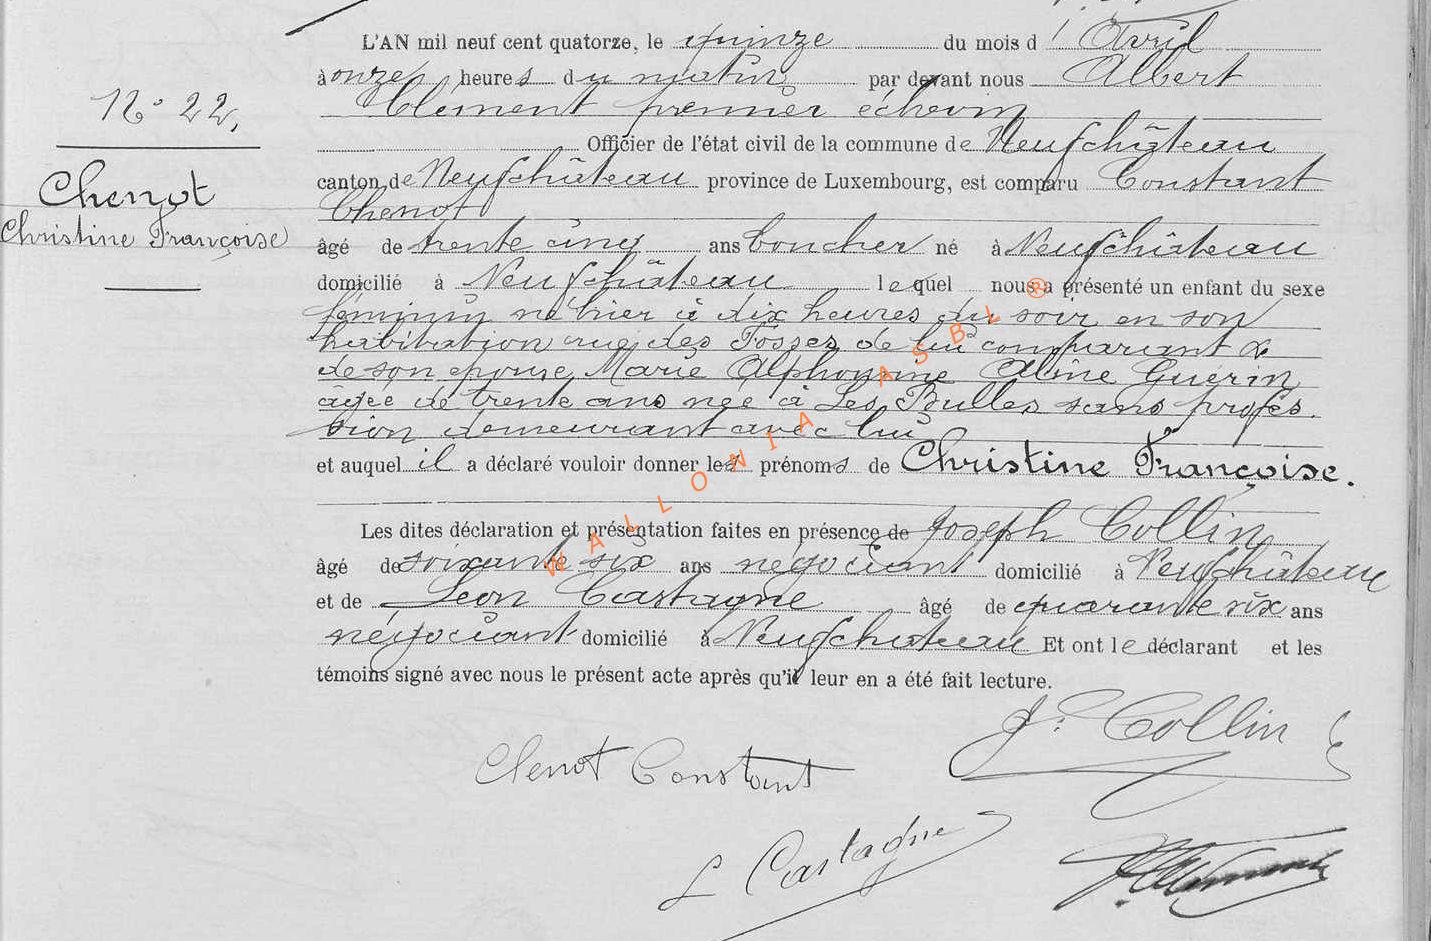 L'AN mil neuf cent quatorze, le quinze du mois d'Avril
à onze heures du matin par devant nous Albert
Clément premier échevin
Officier de l'état civil de la commune de Neufchâteau
N° 22.
canton de Neufchâteau province de Luxembourg, est comparu Constant
Chenot
Chenot
Christine Françoise
âgé de trente cinq ans boucher né à Neufchâteau
domicilié à Neufchâteau lequel nous a présenté un enfant du sexe
féminin né hier à dix heures du soir en son
habitation rue des Fosses de lui comparant &
de son epouse Marie Alphonsine Aline Guérin
âgée de trente ans née à Les Bulles sans profes
sion demeurant avec lui
et auquel il a déclaré vouloir donner les prénoms de Christine Françoise.
Les dites déclaration et présentation faites en présence de Joseph Collin
âgé de soixante six ans négociant domicilié à Neufchâteau
et de Léon Castagne âgé de quarante six ans
négociant domicilié à Neufchateau Et ont le déclarant et les
témoins signé avec nous le présent acte après qu'il leur en a été fait lecture.
J. Collin
Chenot Constant
L Castagne
WALLONIA ASBL ®